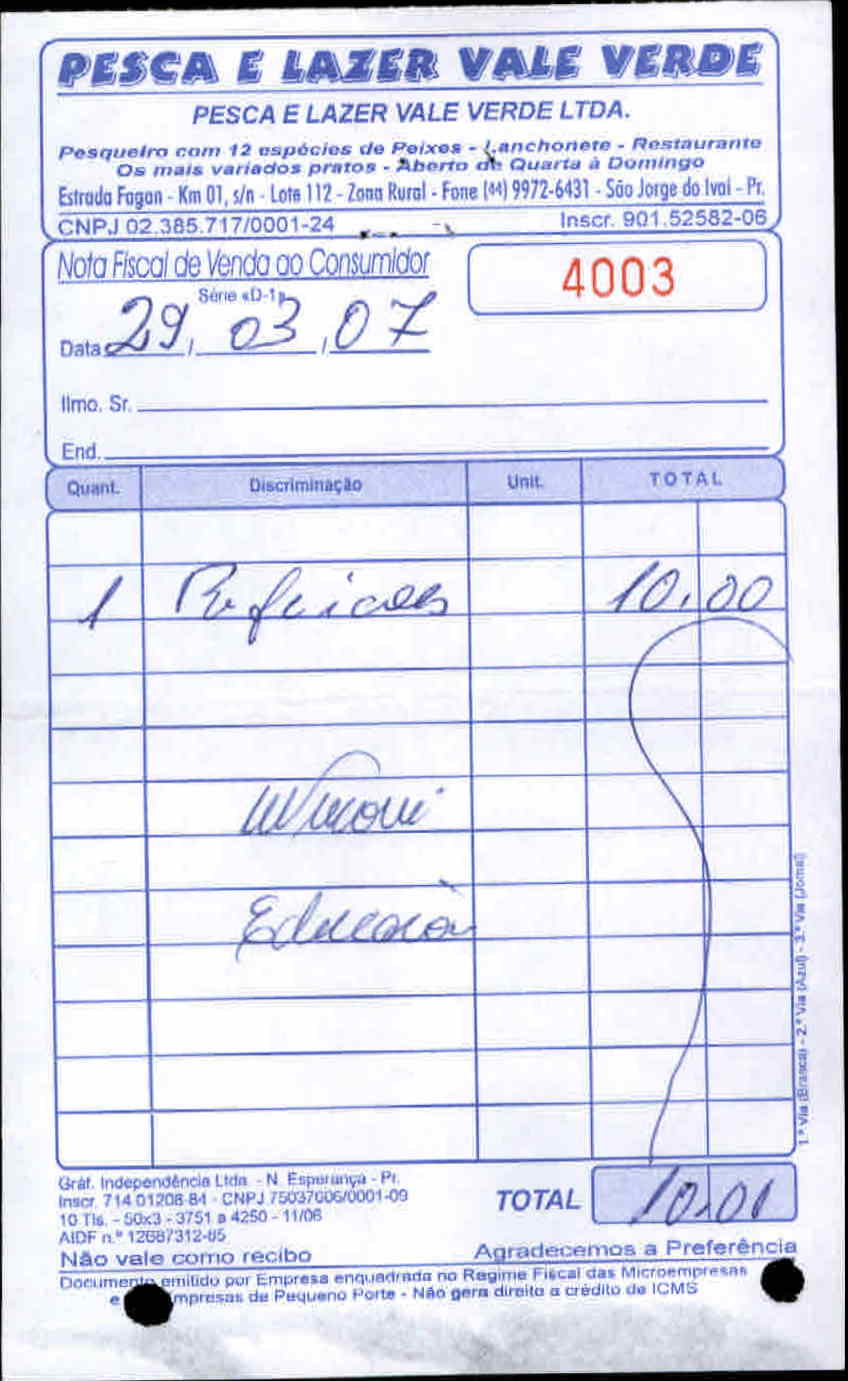 PESCA E LAZER VALE VERDE
PESCA E LAZER VALE VERDE LTDA.
Pesqueiro com 12 espécies de Peixes - Lanchonete - Restaurante
Os mais variados pratos - Aberto de Quarta à Domingo
Estrada Fagan - Km 01, s/n - Lote 112 - Zona Rural - Fone (44) 9972-6431 - São Jorge do Ivaí - Pr.
CNPJ 02.385.717/0001-24 Inscr. 901.52582-06
Nota Fiscal de Venda ao Consumidor
4003
Série «D-1»
Data 29/03/07
Ilmo. Sr.
End.
Quant. Discriminação Unit. TOTAL
1 Refeicoes 10,00
Educação
1.ª Via (Branca) - 2.ª Via (Azul) - 3.ª Via (Jornal)
Gráf. Independência Ltda. - N. Esperança - Pr.
Inscr. 714.01208-84 - CNPJ 75037606/0001-09
10 Tls. - 50x3 - 3751 a 4250 - 11/06
AIDF n.º 12687312-85
TOTAL 10,01
Não vale como recibo Agradecemos a Preferência
Documento emitido por Empresa enquadrada no Regime Fiscal das Microempresas
e mpresas de Pequeno Porte - Não gera direito a crédito de ICMS